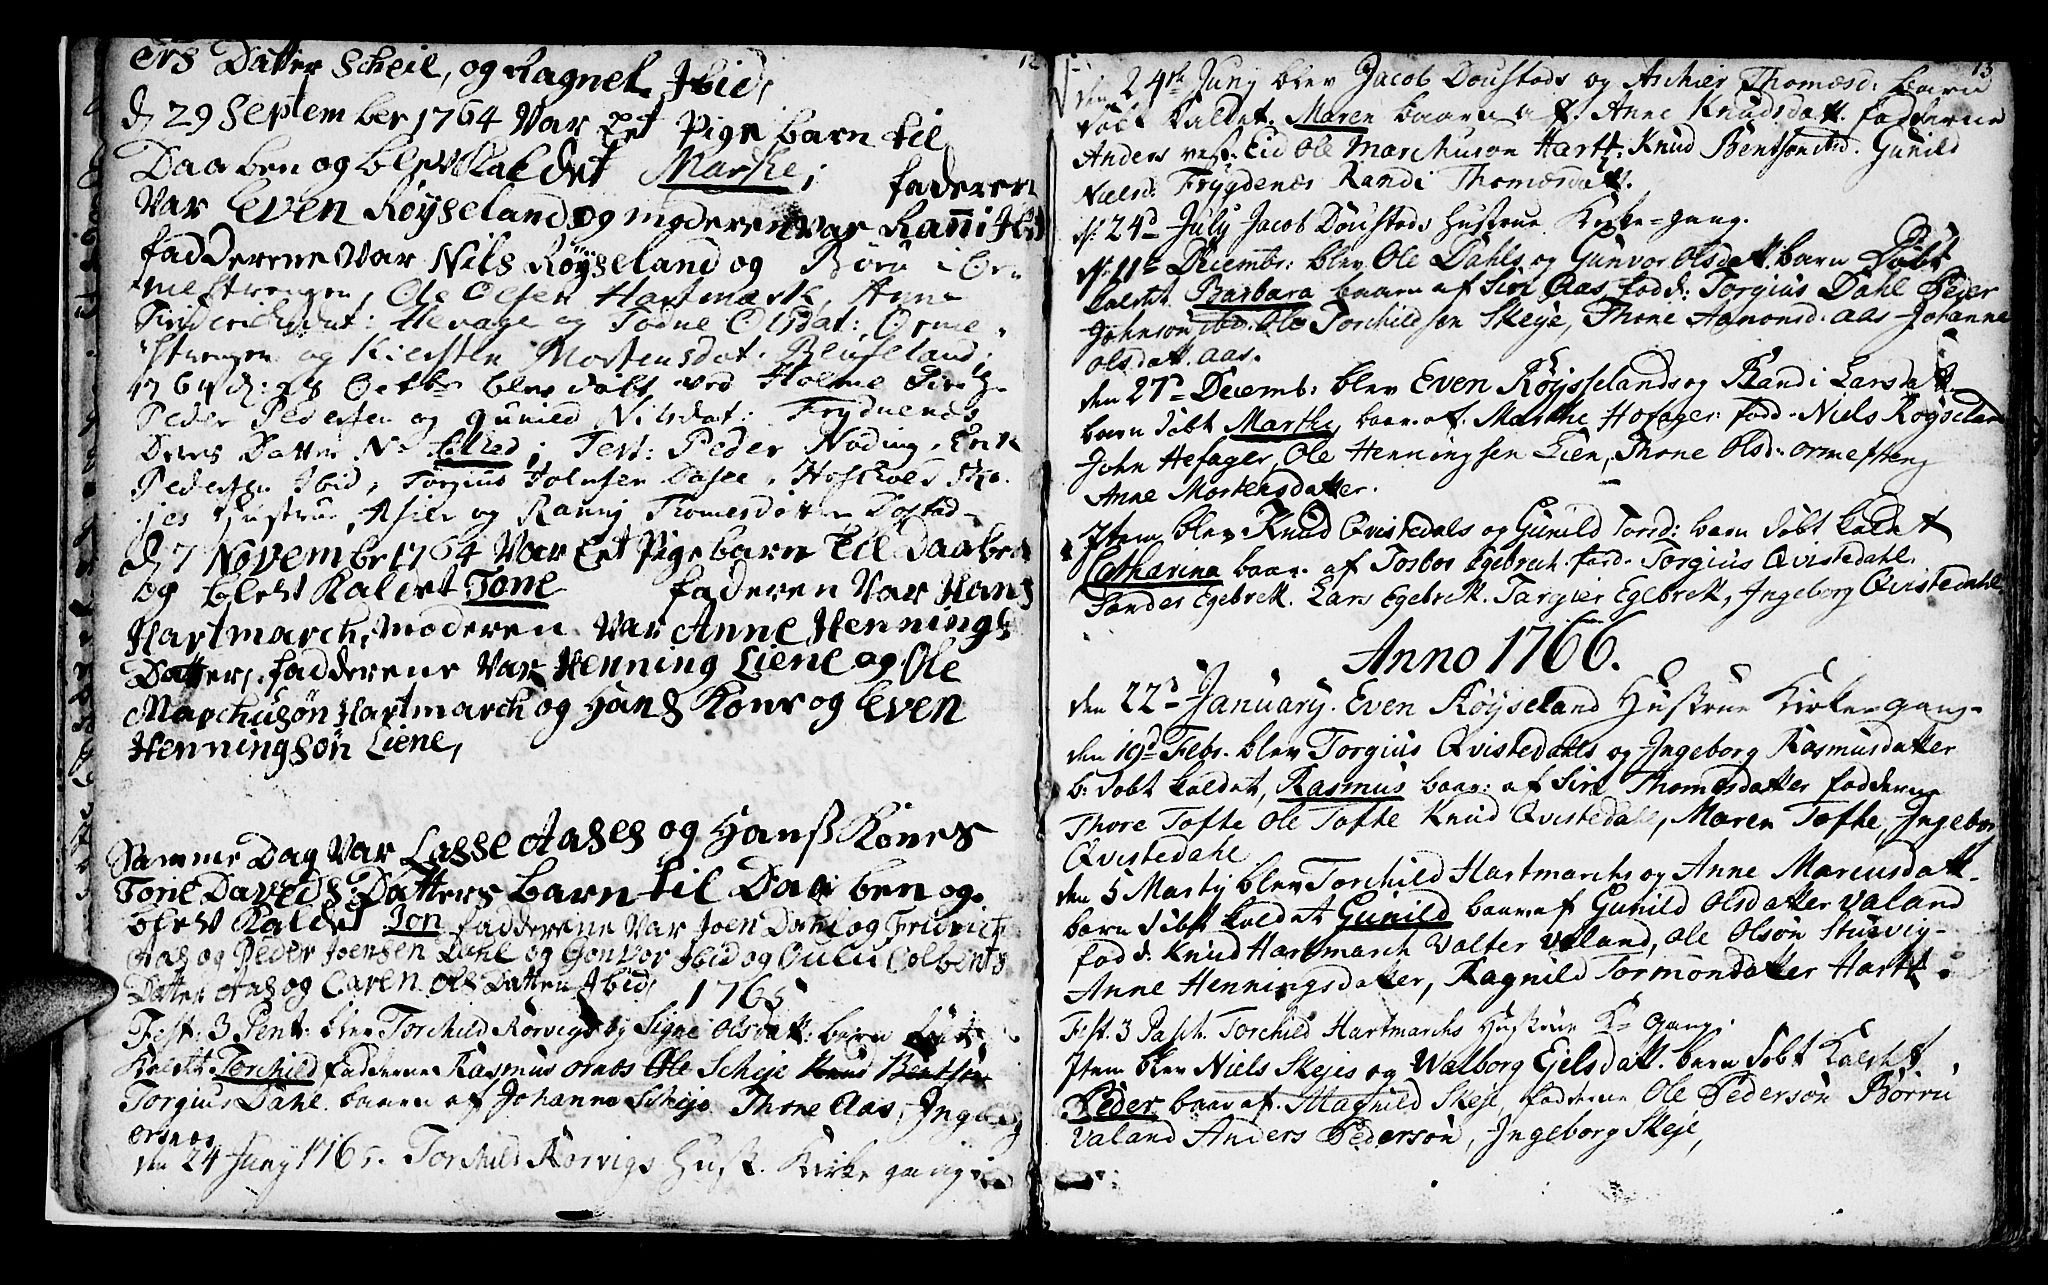 12
ers Datter Scheie, og Ragnel Ibid,
d 29 September 1764 Var Eet Pige barn til
Daaben og blev Kaldet Marthe, faderen
Var Even Røyseland og moderen Var Ranni Ibid
fadderene Var Nils Røyseland og Børu i Or
mestrengen, Ole Olsen Hartmark, Anne
Friderichsdat: Hevage og Todne Olsdat: Orme
strengen og Kiersten Mortensdat. Røuseland;
1764 d: 28 Octbr blev døbt ved Holme Kirke
Peder Pedersen og gunild Nilsdat: Frydnenes
Deres Datter N: Elled; Test: Peder Noding, Erik
Pedersen Ibid, Torgius Holmsen Dasee,
jes Hustrue, Asier og Ranni Thomesdøtter Dostad
d 7 November 1764 Var Eet Pige barn til Daaben
og blev Kaldet Tone faderen Var Hans
Hartmarch, moderen Var Anne Hennings
Datter, fadderene Var Henning Liene og Ole
Marchusøn Hartmarch og Hans Kone og Even
Henningsøn Liene,
Samme Dag Var Lasse Aases og Hanß Kones
Tone Daveds Datters barn til Daaben og
blev Kaldet Jon fadderene Var Joen Dahl og Fredrich
Aas og Peder Joensen Dahl og Gonvor Ibid og Gulu Colbents
Datter Aas og Caren Ols Datter Ibid, 1765
Fest: 3 Pent: blev Torchild Rørvigs og Signe Olsdatt: barn døbt
Kaldet Torchild fadderne Rasmus Ornes Ole Scheje Knud Bentsøn
Torgius Dahl. baaren af Johanna Scheje Thone Aas, Ingeborg
ersnes
den 24 Juny 1765. Torchild Rørvigs Hust. Kirke gang
13
den 24de Juny blev Jacob Doustads og Aschier Thomæsd: barn
døbt kaldet. Maren baaren af. Anne Knudsdatt. fadderne
Anders vest. Eid Ole Marchuson Hartt: Knud Bentson ibid. Gunild
Nielsd: Frygdenes Randi Thomæsdatt.
d: 24de July Jacob Doustads Hustrue Kirke-gang.
d: 11te Decembr: blev Ole Dahls og Gunvor Olsdatt barn Døbt
kaldet Barbara baaren af Siri Aas fadd: Torgius Dahl Peder
Johnson ibid. Ole Torchildsen Skeje, Thone Aamonsd. Aas Johanne
Olsdatt. Aas.
den 27de Decemb: blev Even Røysselands og Randi Larsdatt
barn døbt Marthe, baar. af. Marthe Hefager fadd. Niels Røyseland
John Hefager, Ole Henningsen Lien, Thone Olsd: Ormestreng
Anne Mortensdatter.
Item blev Knud Qvistedals og Gunild Tord: barn døbt kaldet
Catharina baar. af Tosbor Egebreck fadd. Torgius Qvistedahl.
Sander Egebreck. Lars Egebreck. Targier Egebrek, Ingeborg Qvistedahl
Anno 1766.
den 22de January. Even Røyseland Hustrue Kirkegang-
den 19de Febr. blev Torgius Qvistedalls og Ingeborg Rasmusdatter
b: døbt kaldet, Rasmus baar: af Siri Thomesdatter fadderne
Thore Tofte Ole Tofte Knud Qvistedahl, Maren Tofte, Ingeborg
Qvistedahl
den 5 Martij blev Torchild Hartmarchs og Anne Marcusdatt
barn døbt kaldet Gunild baar af Gunild Olsdatter Valand
fadd: Knud Hartmarch Valter Valand, Ole Olsøn Stusvig-
Anne Henningsdatter, Ragnild Tormondatter Hartt.
Fest. 3 Pasch. Torchild Hartmarchs Hustrue K: gang.
Item blev Niels Skejes og Walborg Ejelsdatt. barn døbt Kaldet
Peder baar af. Magnild Skeje fadderne Ole Pedersøn Børru
Valand Anders Pedersøn, Ingeborg Skeje,